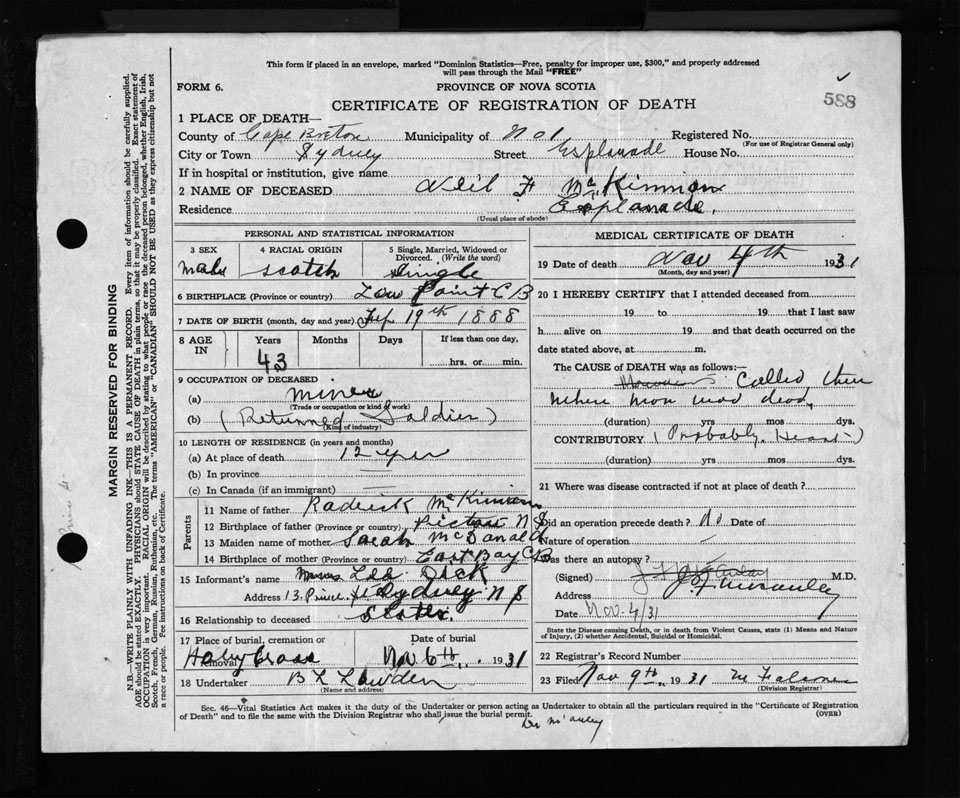 This form if placed in an envelope, marked "Dominion Statistics—Free, penalty for improper use, $300," and properly addressed
will pass through the Mail "FREE"
FORM 6.
PROVINCE OF NOVA SCOTIA
588
CERTIFICATE OF REGISTRATION OF DEATH
1 PLACE OF DEATH—
County of Cape Breton Municipality of No 1 Registered No.
(For use of Registrar General only)
City or Town Sydney Street Esplanade House No.
If in hospital or institution, give name
2 NAME OF DECEASED Neil F McKinnon
Residence Esplanade.
(Usual place of abode)
PERSONAL AND STATISTICAL INFORMATION
3 SEX 4 RACIAL ORIGIN 5 Single, Married, Widowed or Divorced. (Write the word)
Male Scotch Single
6 BIRTHPLACE (Province or country) Low Point C B
7 DATE OF BIRTH (month, day and year) 19th 1888
8 AGE IN Years Months Days If less than one day,
43 hrs. or min.
9 OCCUPATION OF DECEASED
(a) miner
(Trade or occupation or kind of work)
(b) (Returned Soldier)
(Kind of industry)
10 LENGTH OF RESIDENCE (in years and months)
(a) At place of death 12 yrs
(b) In province —
(c) In Canada (if an immigrant) —
Parents
11 Name of father Roderick McKinnon
12 Birthplace of father (Province or country) Pictou N S
13 Maiden name of mother Sarah McDonald
14 Birthplace of mother (Province or country) East Bay C B
15 Informant's name Leo Dick
Address 13 Prince St Sydney N S
16 Relationship to deceased Sister
17 Place of burial, cremation or removal Date of burial
Holy Cross Nov 6th 1931
18 Undertaker
(Name and address)
MEDICAL CERTIFICATE OF DEATH
19 Date of death Nov 4th 1931
(Month, day and year)
20 I HEREBY CERTIFY that I attended deceased from
19 to 19 that I last saw
h alive on 19 and that death occurred on the
date stated above, at m.
The CAUSE of DEATH was as follows:—
Called there
where man was dead,
(duration) yrs mos dys.
CONTRIBUTORY (Probably Heart)
(duration) yrs mos dys.
21 Where was disease contracted if not at place of death?
Did an operation precede death? No Date of
Nature of operation —
Was there an autopsy?
(Signed) M.D.
Address
Date Nov. 4/31
State the Disease causing Death, or in death from Violent Causes, state (1) Means and Nature
of Injury, (2) whether Accidental, Suicidal or Homicidal.
22 Registrar's Record Number
23 Filed Nov 9th 1931
(Division Registrar)
Sec. 46—Vital Statistics Act makes it the duty of the Undertaker or person acting as Undertaker to obtain all the particulars required in the "Certificate of Registration
of Death" and to file the same with the Division Registrar who shall issue the burial permit.
(OVER)
MARGIN RESERVED FOR BINDING
N.B.—WRITE PLAINLY WITH UNFADING INK—THIS IS A PERMANENT RECORD. Every item of information should be carefully supplied.
AGE should be stated EXACTLY. PHYSICIANS should STATE CAUSE OF DEATH in plain terms, so that it may be properly classified. Exact statement of
OCCUPATION is very important. RACIAL ORIGIN will be described by stating to what people or race the deceased person belonged, whether English, Irish,
Scotch, French, German, Russian, Ruthenian, etc. The terms "AMERICAN" or "CANADIAN" SHOULD NOT BE USED as they express citizenship but not
a race or people. Fee instructions on back of Certificate.